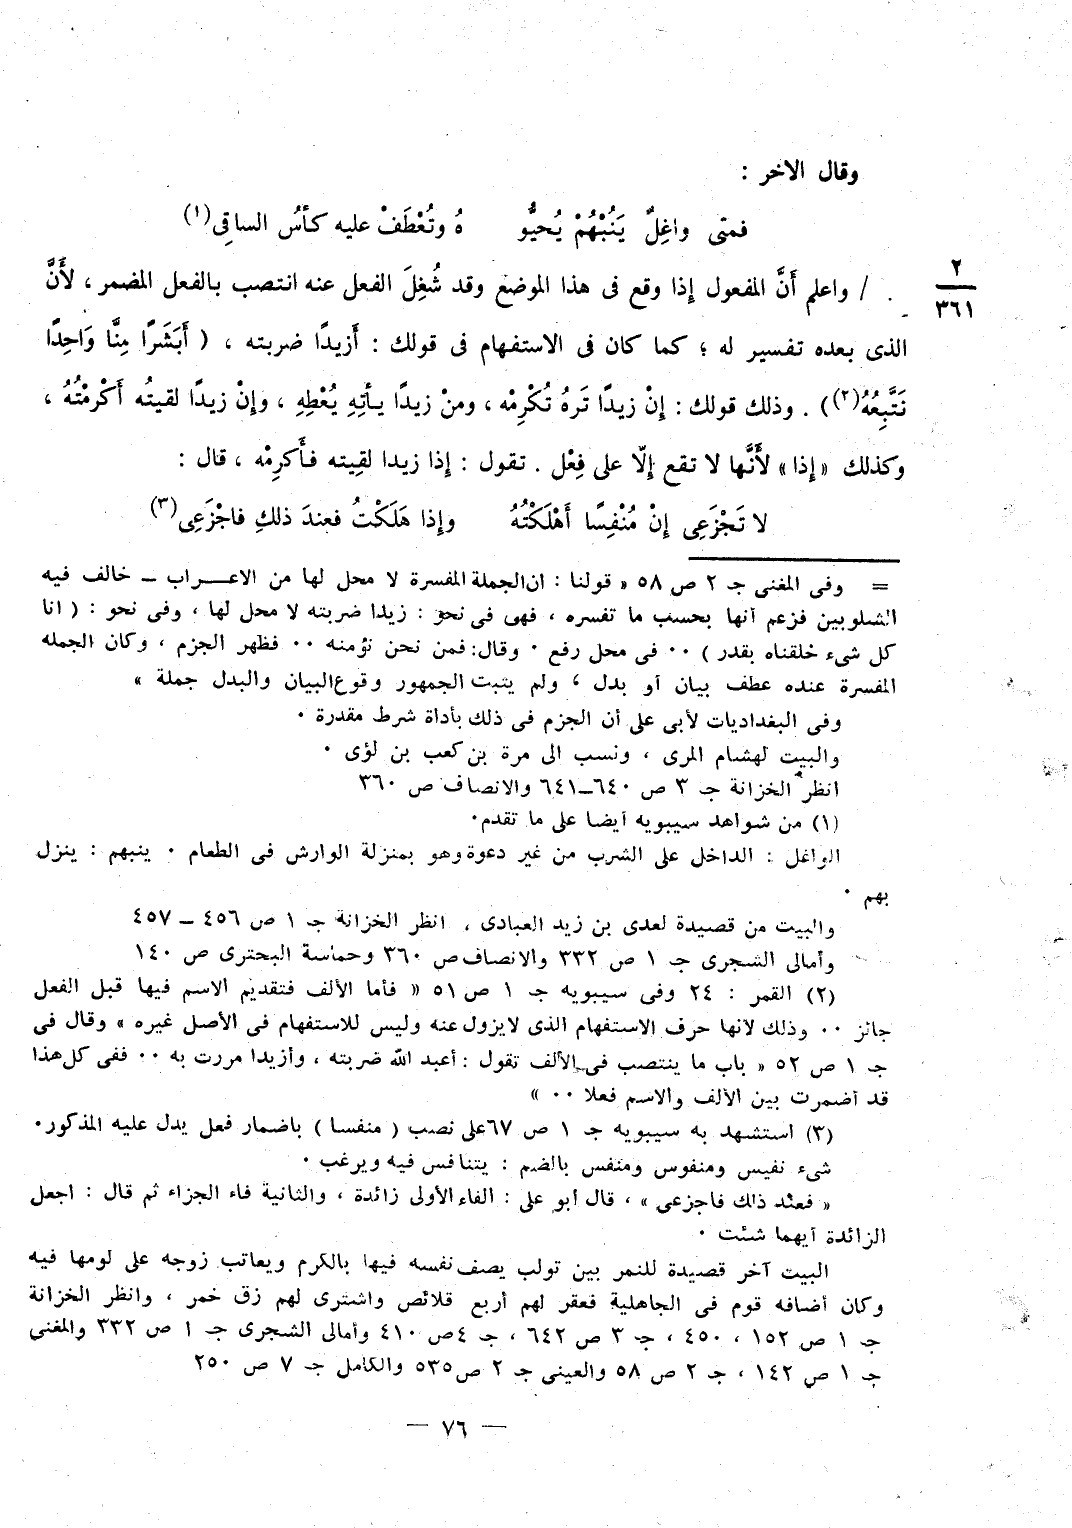 وقال الآخر :
فمتى واغِلٌ يَنُبْهُمْ يُحيُّو هُ وتُعْطَفْ عليه كأسُ الساقِى(١)
٢
٣٦١
/ واعلم أَنَّ المفعول إذا وقع فى هذا الموضع وقد شُغِلَ الفعل عنه انتصب بالفعل المضمر ، لأَنَّ
الذى بعده تفسير له ؛ كما كان فى الاستفهام فى قولك : أَزيدًا ضربته ، ( أَبَشَرًا مِنَّا وَاحِدًا
نَتَّبِعُهُ(٢)) . وذلك قولك : إنْ زيدًا تَرهُ تُكْرِمْه ، ومنْ زيدًا يأتِهِ يُعْطِهِ ، وإنْ زيدًا لقيتُه أَكْرمْتُهُ ،
وكذلك « إذا » لأَنَّها لا تقع إلّا على فِعْل . تقول : إذا زيدا لقِيته فأَكرِمْه ، قال :
لا تَجْزَعِى إنْ مُنْفِسًا أَهْلَكْتُهُ وإذا هَلَكْتُ فعندَ ذلكِ فاجْزَعِى(٣)
= وفى المغنى جـ ٢ ص ٥٨ « قولنا : ان الجملة المفسرة لا محل لها من الاعـــراب – خالف فيه
الشلوبين فزعم أنها بحسب ما تفسره ، فهى فى نحو : زيدا ضربته لا محل لها ، وفى نحو : ( انا
كل شىء خلقناه بقدر ) ٠٠ فى محل رفع ٠ وقال: فمن نحن نؤمنه ٠٠ فظهر الجزم ، وكان الجمله
المفسرة عنده عطف بيان أو بدل ، ولم يثبت الجمهور وقوع البيان والبدل جملة »
وفى البغداديات لأبى على أن الجزم فى ذلك بأداة شرط مقدرة ٠
والبيت لهشام المرى ، ونسب الى مرة بن كعب بن لؤى ٠
انظر الخزانة جـ ٣ ص ٦٤٠–٦٤١ والانصاف ص ٣٦٠
(١) من شواهد سيبويه أيضا على ما تقدم٠
الواغل : الداخل على الشرب من غير دعوة وهو بمنزلة الوارش فى الطعام ٠ ينبهم : ينزل
بهم ٠
والبيت من قصيدة لعدى بن زيد العبادى ، انظر الخزانة جـ ١ ص ٤٥٦ – ٤٥٧
وأمالى الشجرى جـ ١ ص ٣٣٢ والانصاف ص ٣٦٠ وحماسة البحترى ص ١٤٠
(٢) القمر : ٢٤ وفى سيبويه جـ ١ ص ٥١ « فأما الألف فتقديم الاسم فيها قبل الفعل
جائز ٠٠ وذلك لانها حرف الاستفهام الذى لايزول عنه وليس للاستفهام فى الأصل غيره » وقال فى
جـ ١ ص ٥٢ « باب ما ينتصب فى الألف تقول : أعبد الله ضربته ، وأزيدا مررت به ٠٠ ففى كل هذا
قد أضمرت بين الألف والاسم فعلا ٠٠ »
(٣) استشهد به سيبويه جـ ١ ص ٦٧ على نصب ( منفسا ) باضمار فعل يدل عليه المذكور٠
شىء نفيس ومنفوس ومنفس بالضم : يتنافس فيه ويرغب ٠
« فعند ذلك فاجزعى » ، قال أبو على : الفاء الأولى زائدة ، والثانية فاء الجزاء ثم قال : اجعل
الزائدة أيهما شئت ٠
البيت آخر قصيدة للنمر بين تولب يصف نفسه فيها بالكرم ويعاتب زوجه على لومها فيه
وكان أضافه قوم فى الجاهلية فعقر لهم أربع قلائص واشترى لهم زق خمر ، وانظر الخزانة
جـ ١ ص ١٥٢ ، ٤٥٠ ، جـ ٣ ص ٦٤٢ ، جـ ٤ ص ٤١٠ وأمالى الشجرى جـ ١ ص ٣٣٢ والمغنى
جـ ١ ص ١٤٢ ، جـ ٢ ص ٥٨ والعينى جـ ٢ ص ٥٣٥ والكامل جـ ٧ ص ٢٥٠
— ٧٦ —